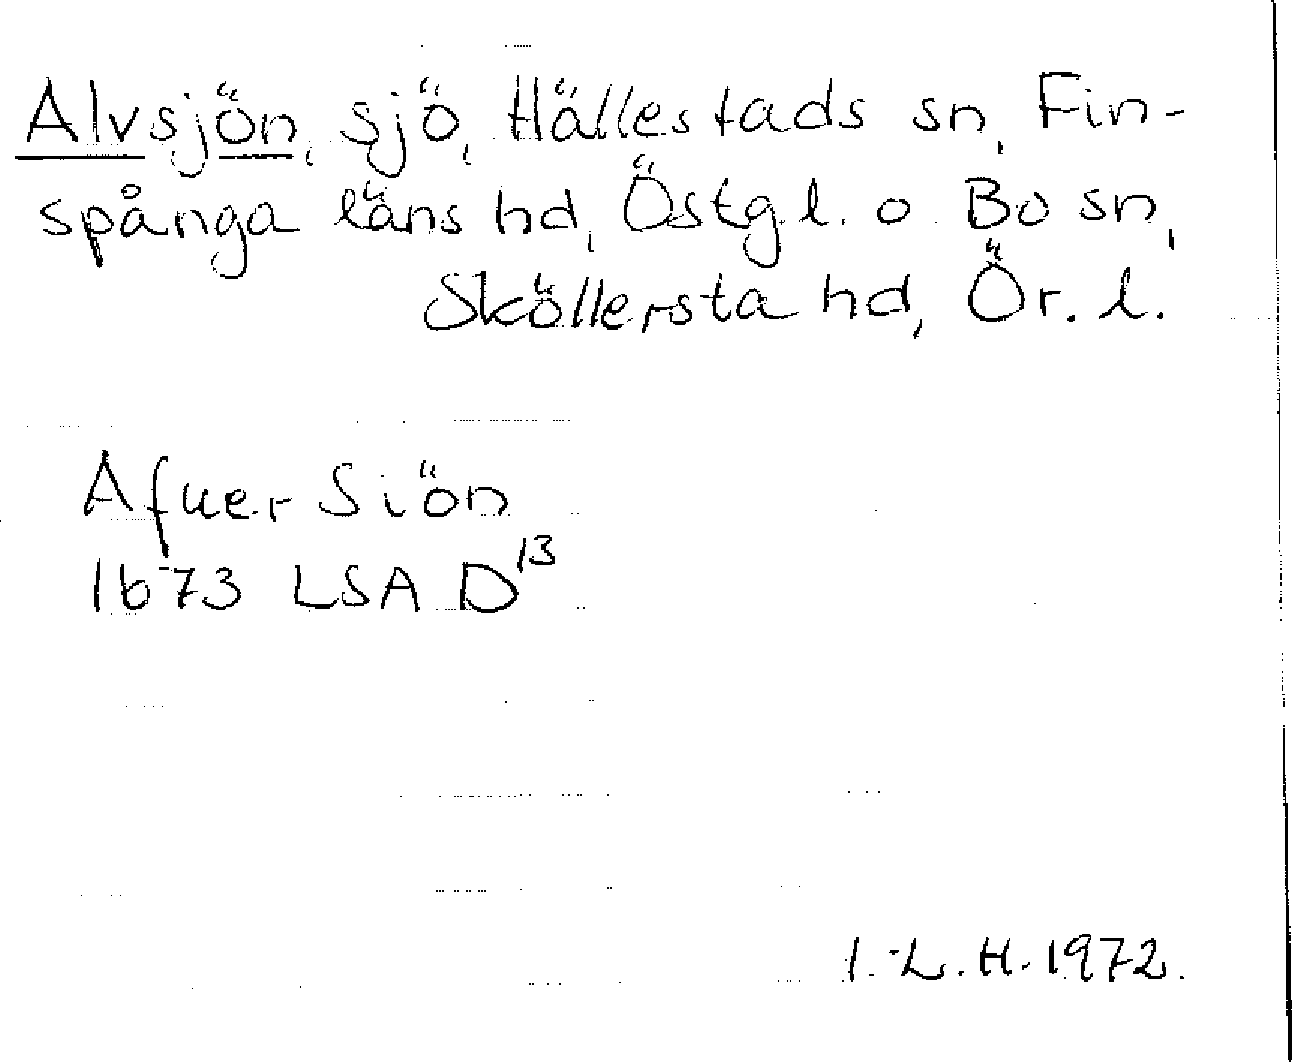 Alvsjön, sjö, Hällestads sn, Fin-
spånga läns hd, Östg.l. o. Bo sn,
Sköllersta hd, Ör. l.
Afuer Siön
1673 LSA D13
I.-L. H. 1972.